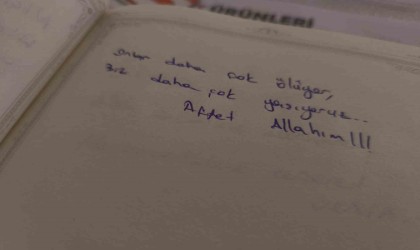 ÜRÜNLERİ
onlar daha çok ölüyor,
biz daha çok yaşıyoruz...
Affet Allahım!!!